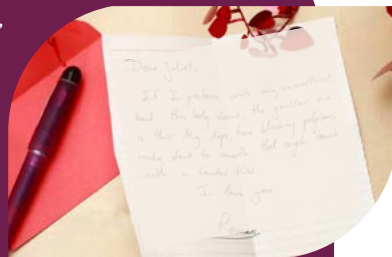 Dear Juliet,
If I profane with my unworthiest
hand this holy shrine, the gentler sin
is this: My lips, two blushing pilgrims
ready stand to smooth that rough touch
with a tender kiss
I love you
Romeo